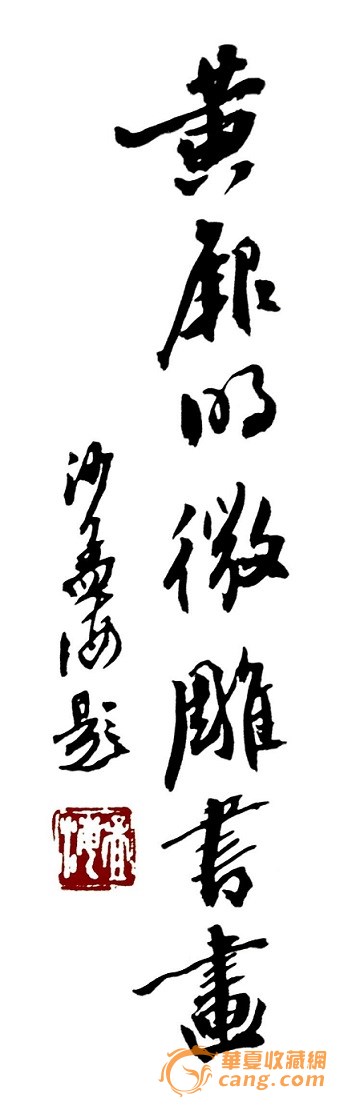 黄明微雕書畫
沙孟海題
華夏收藏網
cang.com